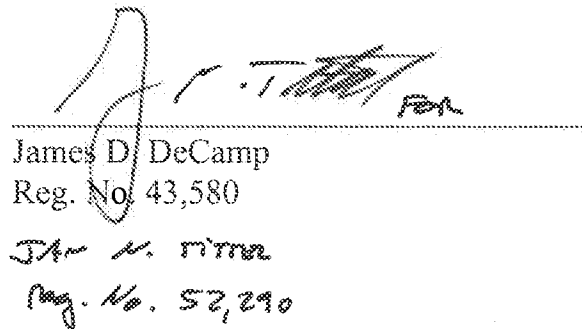 FOR
James D. DeCamp
Reg. No. 43,580
JAN N. TITTOR
Reg. No. 52,290